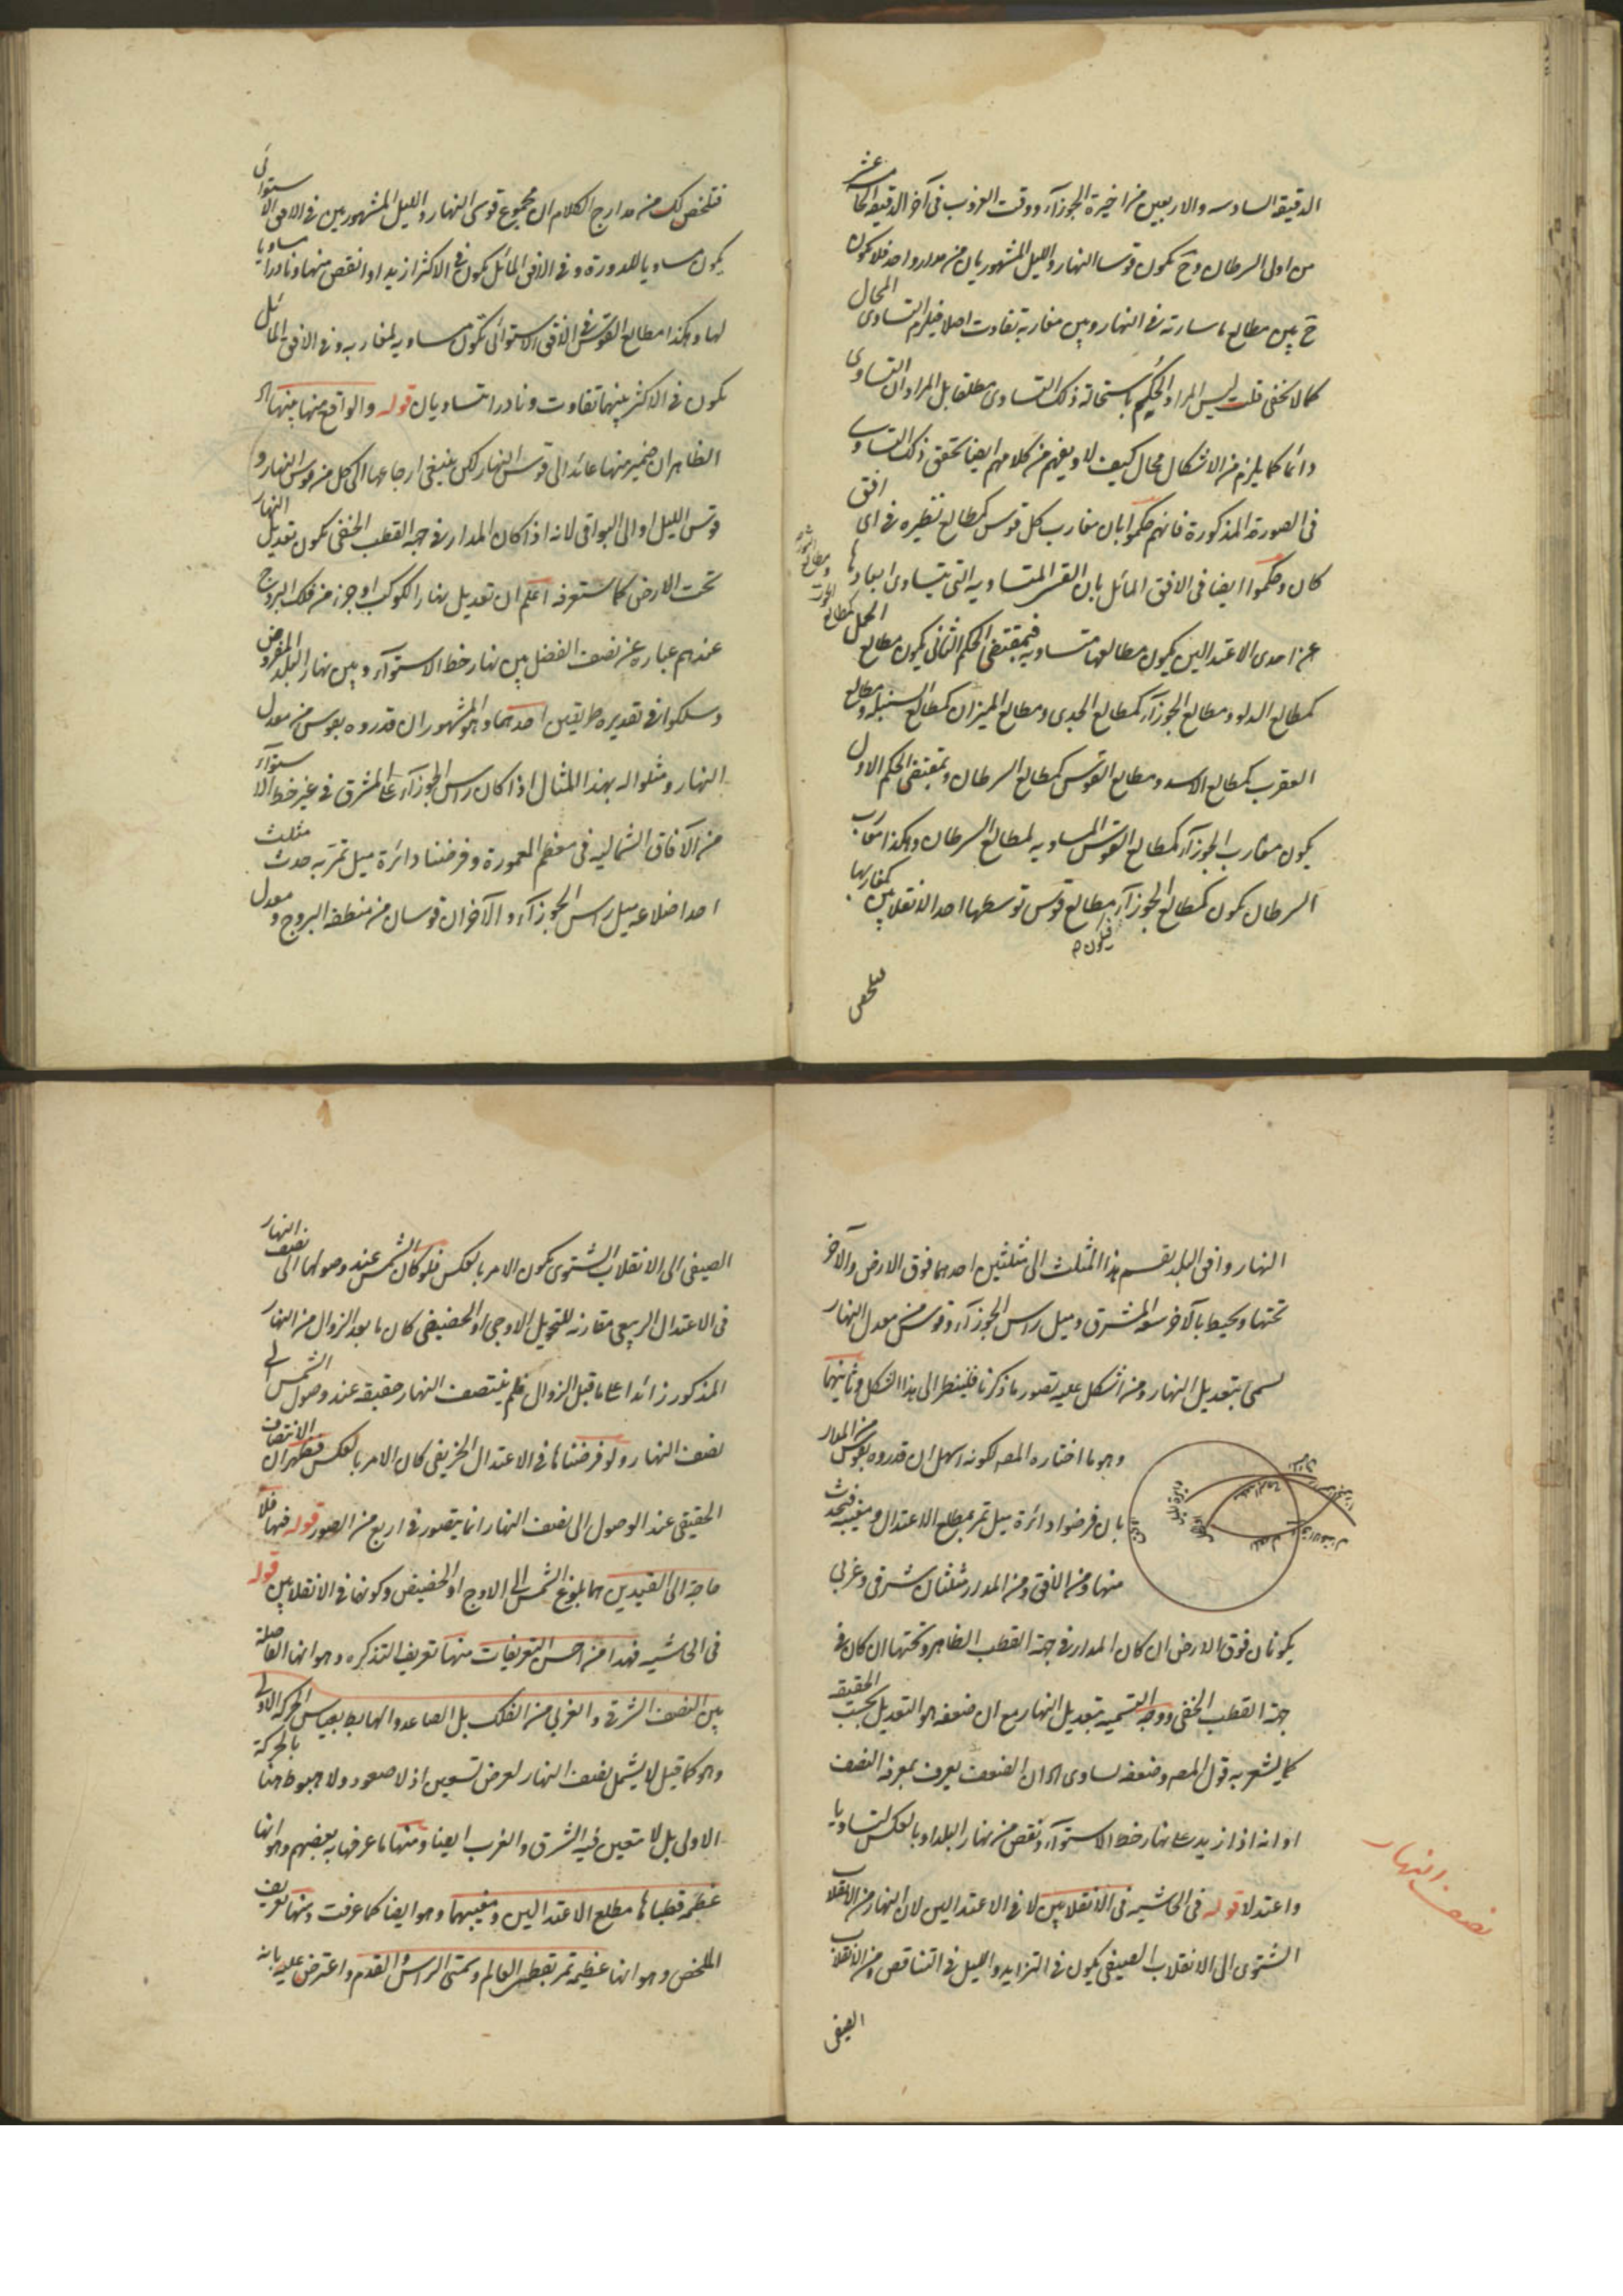 الدقيقة السادسة والاربعين من اخيرة الجوزآء ووقت الغروب فى آخر الدقيقة الحادية عشر
من اولى السرطان وح يكون قوسا النهار والليل المشهوريان من مدار واحد فلا يكون
ح بين مطالع ما سارته فى النهار وبين مغاربه تفاوت اصلا فيلزم التساوى المحال
كما لا يخفى قلت ليس المراد الحكم باستحالة ذلك التساوى مطلقا بل المراد ان التساوى
دائما كما يلزم من الاشكال محال كيف لا ويفهم من كلامهم ايضا تحقق ذلك التساوى
فى الصورة المذكورة فانهم حكموا بان مغارب كل قوس كمطالع نظيره فى اى افق
كان وحكموا ايضا فى الافق المائل بان القسى المتساوية التى يتساوى ابعادها
عن احدى الاعتدالين يكون مطالعها متساوية فبمقتضى الحكم الثانى يكون مطالع الحمل
كمطالع الحوت ومطالع الثور
كمطالع الدلو ومطالع الجوزآء كمطالع الجدى ومطالع الميزان كمطالع السنبلة ومطالع
العقرب كمطالع الاسد ومطالع القوس كمطالع السرطان وبمقتضى الحكم الاول
يكون مغارب الجوزآء كمطالع القوس المساوية لمطالع السرطان وهكذا مغارب
السرطان يكون كمطالع الجوزآء فيكون مطالع قوس توسطها احد الانقلابين كمغاربها
فتلخص لك من مدارج الكلام ان مجموع قوسى النهار والليل المشهوريين فى الافق الاستوائى
يكون مساويا للدورة وفى الافق المائل يكون فى الاكثر ازيد او انقص منها ونادرا مساويا
لها وهكذا مطالع القوس فى الافق الاستوائى تكون مساوية لمغاربه وفى الافق المائل
يكون فى الاكثر بينهما تفاوت ونادرا يتساويان قوله والواقع منها بينهما اه
الظاهر ان ضمير منها عائد الى قوس النهار لكن ينبغى ارجاعها الى كل من قوس النهار و
قوس الليل او الى البواقى لانه اذا كان المدار فى جهة القطب الخفى يكون تعديل النهار
تحت الارض كما ستعرفه اعلم ان تعديل نهار الكوكب او جزء من فلك البروج
عندهم عبارة عن نصف الفضل بين نهار خط الاستوآء وبين نهار البلد المفروض
وسلكوا فى تقديره طريقين احدهما وهو المشهور ان قدروه بقوس من معدل
النهار ومثلوا له بهذا المثال اذا كان راس الجوزآء على المشرق فى غير خط الاستوآء
من الآفاق الشمالية فى معظم المعمورة وفرضنا دائرة ميل تمر به حدث مثلث
احد اضلاعه ميل راس الجوزآء والآخران قوسان من منطقة البروج و معدل
النهار وافق البلد يقسم هذا المثلث الى مثلثين احدهما فوق الارض والآخر
تحتها ويحيط بالآخر سعة المشرق وميل راس الجوزآء وقوس من معدل النهار
يسمى بتعديل النهار ومن اشكل عليه تصور ما ذكرنا فلينظر الى هذا الشكل وثانيهما
وهو ما اختاره المصه لكونه اسهل ان قدروه بقوس من المدار
بان فرضوا دائرة ميل تمر بمطلع الاعتدال ومغيبه فيحدث
منها ومن الافق ومن المدار مثلثان شرقى وغربى
يكونان فوق الارض ان كان المدار فى جهة القطب الظاهر وتحتها ان كان فى
جهة القطب الخفى ووجه التسمية بتعديل النهار مع ان ضعفه هو التعديل بحسب الحقيقة
كما يشعر به قول المصه وضعفه يساوى اه ان الضعف يعرف بمعرفة النصف
او انه اذا ازيد على نهار خط الاستوآء ونقص من نهار البلد او بالعكس تساويا
واعتدلا قوله فى الحاشية فى الانقلابين لا فى الاعتدالين لان النهار من الانقلاب
الشتوى الى الانقلاب الصيفى يكون فى التزايد والليل فى التناقص ومن الانقلاب
الصيفى
نصف النهار
الصيفى الى الانقلاب الشتوى يكون الامر بالعكس فلو كان الشمس عند وصولها الى نصف النهار
فى الاعتدال الربيعى مقارنة للتحويل الاوجى او الحضيضى كان ما بعد الزوال من النهار
المذكور زائدا على ما قبل الزوال فلم ينتصف النهار حقيقة عند وصول الشمس الى
نصف النهار ولو فرضناها فى الاعتدال الخريفى كان الامر بالعكس فظهر ان الانتصاف
الحقيقى عند الوصول الى نصف النهار انما يتصور فى اربع من الصور قوله فيها فلا
حاجة الى القيدين هما بلوغ الشمس الى الاوج او الحضيض وكونها فى الانقلابين قوله
فى الحاشية فهذا من احسن التعريفات منها تعريف التذكرة وهو انها الفاصلة
بين النصف الشرقى والغربى من الفلك بل الصاعد والهابط بقياس الحركة الاولى
وهو كما قيل لا يشمل نصف النهار لعرض تسعين اذ لا صعود ولا هبوط هنا بالحركة
الاولى بل لا يتعين فيه الشرق والغرب ايضا ومنها ما عرفها به بعضهم وهو انها
عظيمة قطباها مطلع الاعتدالين ومغيبهما وهو ايضا كما عرفت ومنها تعريف
الملخص وهو انها عظيمة تمر بقطبى العالم وسمتى الراس والقدم واعترض عليه بانه